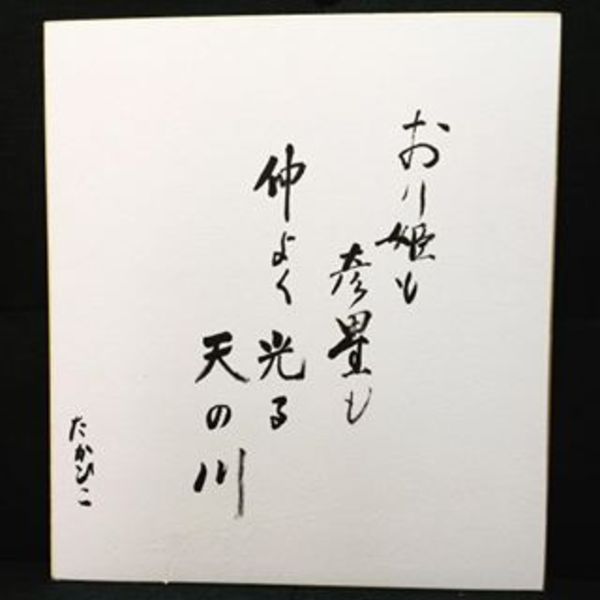 おり姫も
彦星も
仲よく光る
天の川
たかひこ